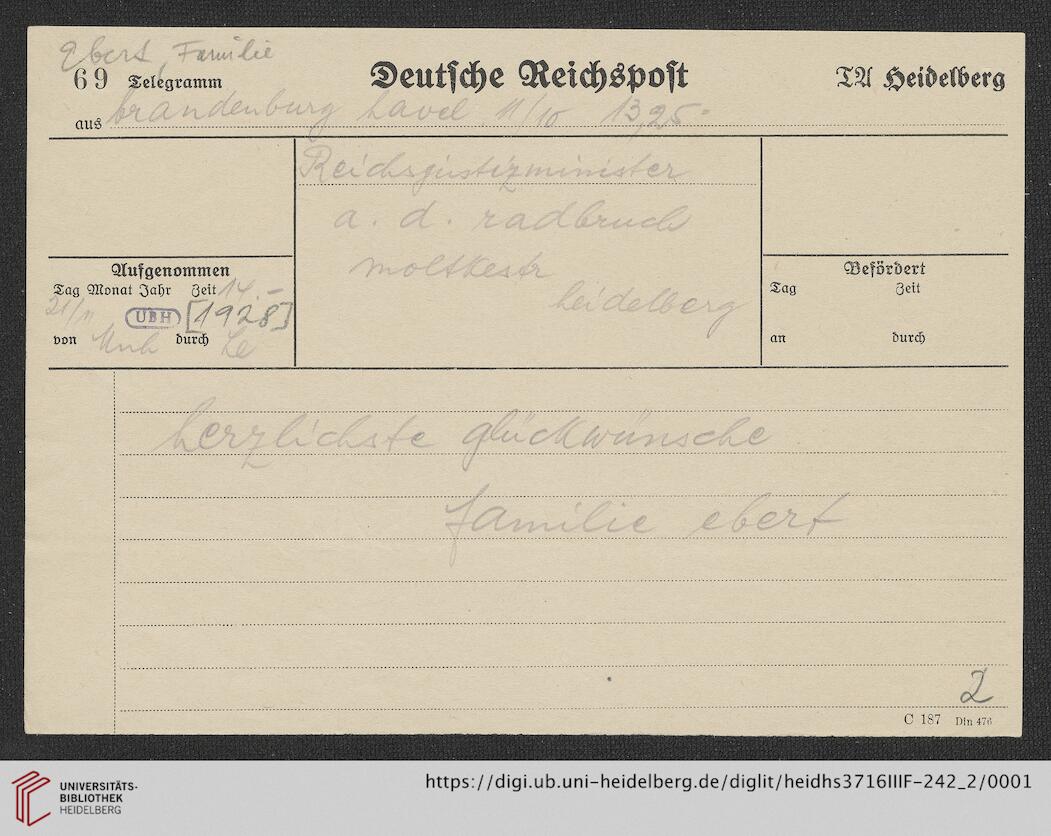 Ebert, Familie
69 Telegramm
Deutsche Reichspost
TA Heidelberg
aus brandenburg havel 11/10 13,25-
Reichsjustizminister
a. d. radbruch
moltkestr
heidelberg
Aufgenommen
Tag Monat Jahr Zeit 14.-
21/11 UBH [1928]
von durch Le
Befördert
Tag Zeit
an durch
herzlichste glückwünsche
familie ebert
2
C 187 Din 476
UNIVERSITÄTS-
BIBLIOTHEK
HEIDELBERG
https://digi.ub.uni-heidelberg.de/diglit/heidhs3716IIIF-242_2/0001